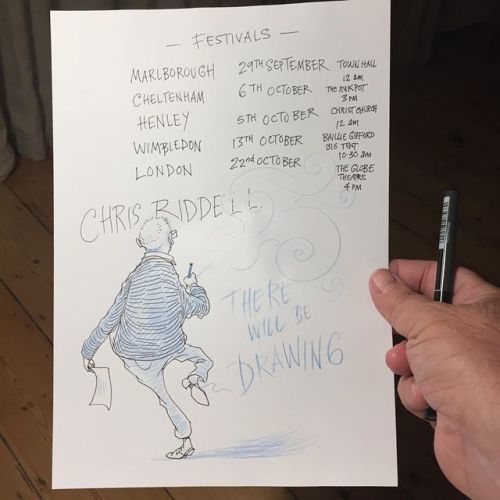 — FESTIVALS —
MARLBOROUGH 29TH SEPTEMBER TOWN HALL
12 am
CHELTENHAM 6TH OCTOBER THE INKPOT
3 pm
HENLEY 5TH OCTOBER CHRISTCHURCH
12 am
WIMBLEDON 13TH OCTOBER BAILLIE GIFFORD
BIG TENT
10·30 am
LONDON 22nd OCTOBER THE GLOBE
THEATRE
4 pm
CHRIS RIDDELL.
THERE
WILL BE
DRAWING